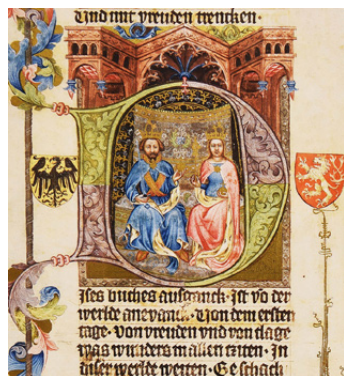 Vnd mit vreuden trencken·
ises buches ausganck· Ist vo der
werlde anevanck· Von dem ersten
tage· von vreuden vnd von clage
was wunders in allen ziten· In
diser werlde weiten· Geschach